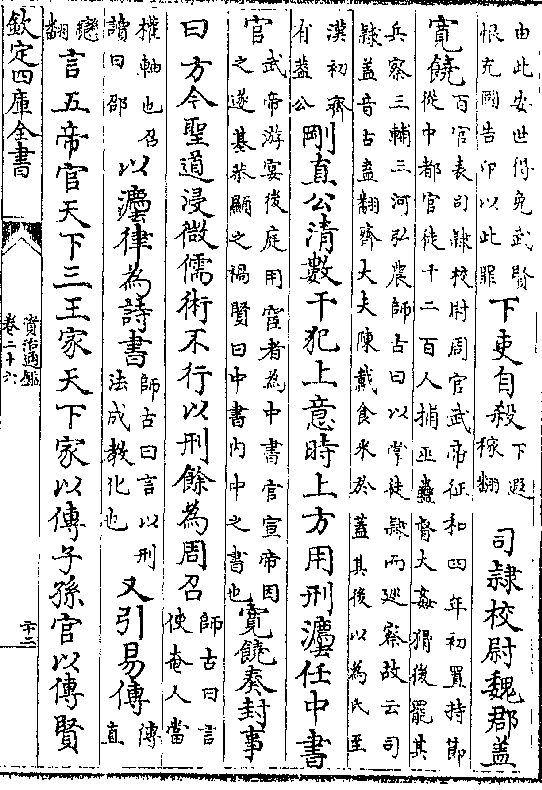 由此安世得免武賢
恨充國告卬以此罪
下吏自殺
下遐
稼翻
司隸校尉魏郡蓋
寛饒
百官表司隸校尉周官武帝征和四年初置持節
從中都官徒千二百人捕巫蠱督大姦猾後罷其
兵察三輔三河弘農師古曰以掌徒隸而廵察故云司
隸蓋音古盍翻齊大夫陳戴食采於蓋其後以為氏至
漢初齊
有蓋公
剛直公清數干犯上意時上方用刑灋任中書
官
武帝游宴後庭用宦者為中書官宣帝因
之遂基恭顯之禍賢曰中書内中之書也
寛饒奏封事
曰方今聖道浸微儒術不行以刑餘為周召
師古曰言
使奄人當
權軸也召
讀曰邵
以灋律為詩書
師古曰言以刑
法成教化也
又引易傳
傳
直
戀
翻
言五帝官天下三王家天下家以傳子孫官以傳賢
欽定四庫全書
資治通鑑
卷二十六